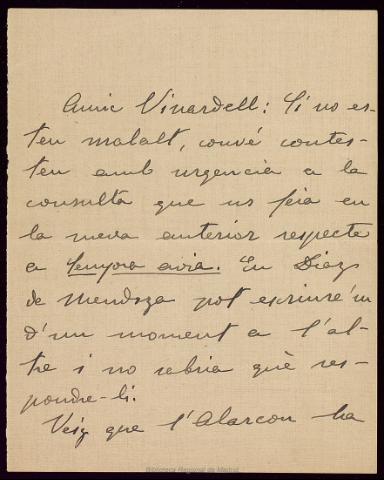 Amic Vinardell: Si no es-
teu malalt, convé contes-
teu amb urgencia a la
consulta que us feia en
la meva anterior respecte
a Senyora avia. En Diaz
de Mendoza pot escriure'm
d'un moment a l'al-
tre i no sabria què res-
pondre-li.
Veig que l'Alarcon ha
Biblioteca Regional de Madrid